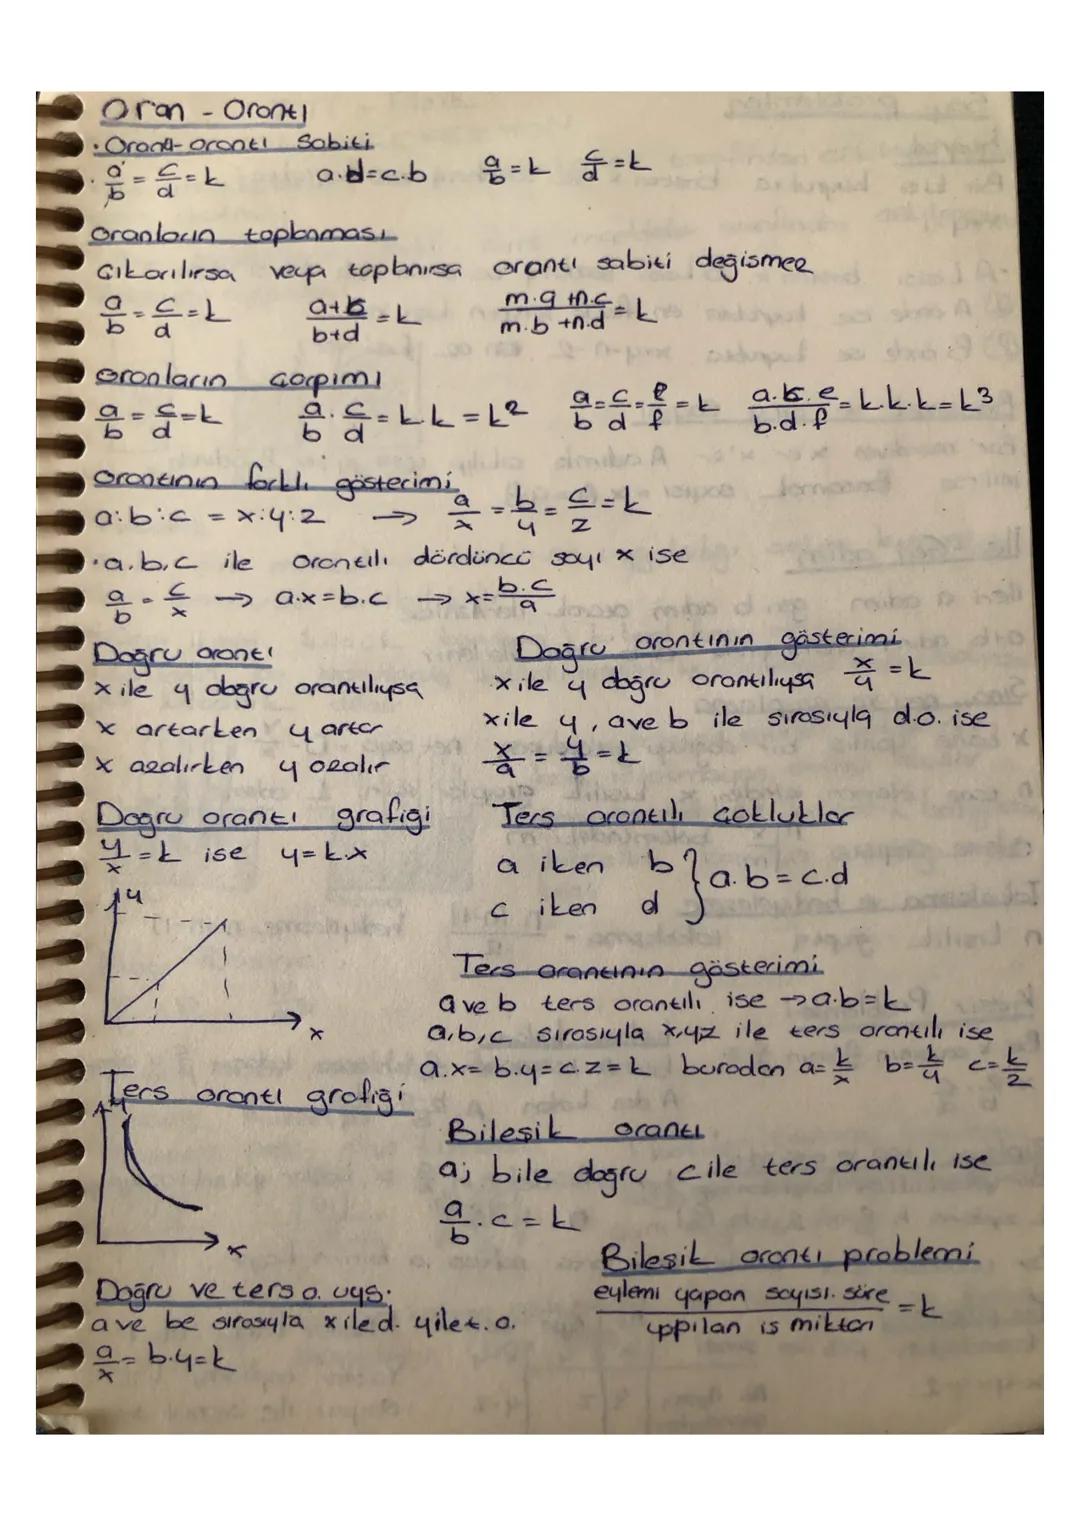 Oran - Orantı
· Orantı-orantı Sabiti
· a/b = c/d = k    a.d=c.b    a/b = k    c/d = k
Oranların toplanması
Çıkarılırsa veya toplanırsa orantı sabiti değişmez
a/b = c/d = k    a+c/b+d = k    m.a+n.c/m.b+n.d = k
Oranların çarpımı
a/b = c/d = k    a/b . c/d = k.k = k²    a/b = c/d = e/f = k    a.c.e/b.d.f = k.k.k = k³
Orantının farklı gösterimi
a:b:c = x:y:z → a/x = b/y = c/z = k
· a,b,c ile orantılı dördüncü sayı x ise
a/b = c/x → a.x=b.c → x= b.c/a
Doğru orantı
x ile y doğru orantılıysa
x artarken y artar
x azalırken y azalır
Doğru orantının gösterimi
x ile y doğru orantılıysa x/y = k
x ile y, a ve b ile sırasıyla d.o. ise
x/a = y/b = k
Doğru orantı grafiği
y/x = k ise y=k.x
y
x
Ters orantılı çokluklar
a iken b
c iken d } a.b = c.d
Ters orantının gösterimi
a ve b ters orantılı ise → a.b=k
a,b,c sırasıyla x,y,z ile ters orantılı ise
a.x= b.y= c.z= k buradan a= k/x b= k/y c= k/z
Ters orantı grafiği
y
x
Bileşik orantı
a; b ile doğru c ile ters orantılı ise
a/b . c = k
Bileşik orantı problemi
eylemi yapan sayısı. süre/yapılan iş miktarı = k
Doğru ve ters o. uyg.
a ve b sırasıyla x ile d. y ile t. o.
a/x = b.y=k